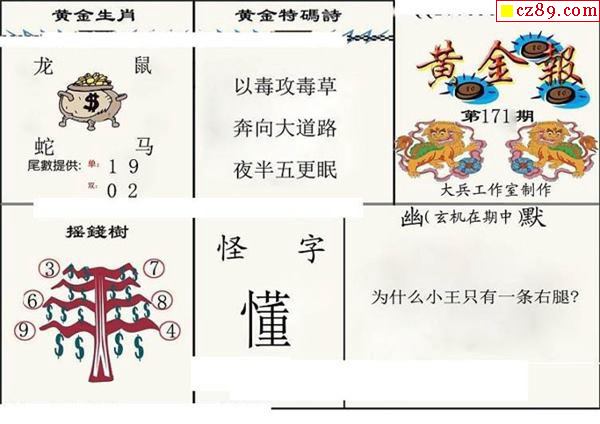 cz89.com
黄金生肖
龙 鼠
$
蛇 马
尾數提供: 单: 1 9
双: 0 2
黄金特碼詩
以毒攻毒草
奔向大道路
夜半五更眠
黄金報
第171期
大兵工作室制作
摇錢樹
3 7
6 8
9 4
$ $ $ $
$ $ $ $
怪 字
懂
幽(玄机在期中)默
为什么小王只有一条右腿?